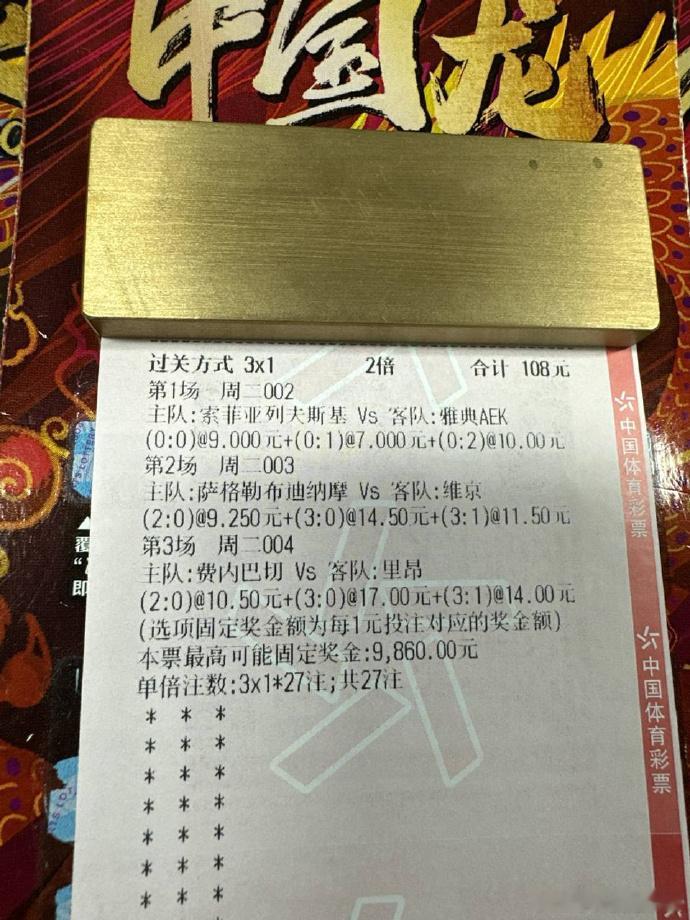 中国龙
过关方式 3x1 2倍 合计 108元
第1场 周二002
主队:索菲亚列夫斯基 Vs 客队:雅典AEK
(0:0)@9.000元+(0:1)@7.000元+(0:2)@10.00元
第2场 周二003
主队:萨格勒布迪纳摩 Vs 客队:维京
(2:0)@9.250元+(3:0)@14.50元+(3:1)@11.50元
第3场 周二004
主队:费内巴切 Vs 客队:里昂
(2:0)@10.50元+(3:0)@17.00元+(3:1)@14.00元
(选项固定奖金额为每1元投注对应的奖金额)
本票最高可能固定奖金:9,860.00元
单倍注数:3x1*27注;共27注
* * *
* * *
* * *
* * *
* * *
* * *
* * *
中国体育彩票
中国体育彩票
覆
即